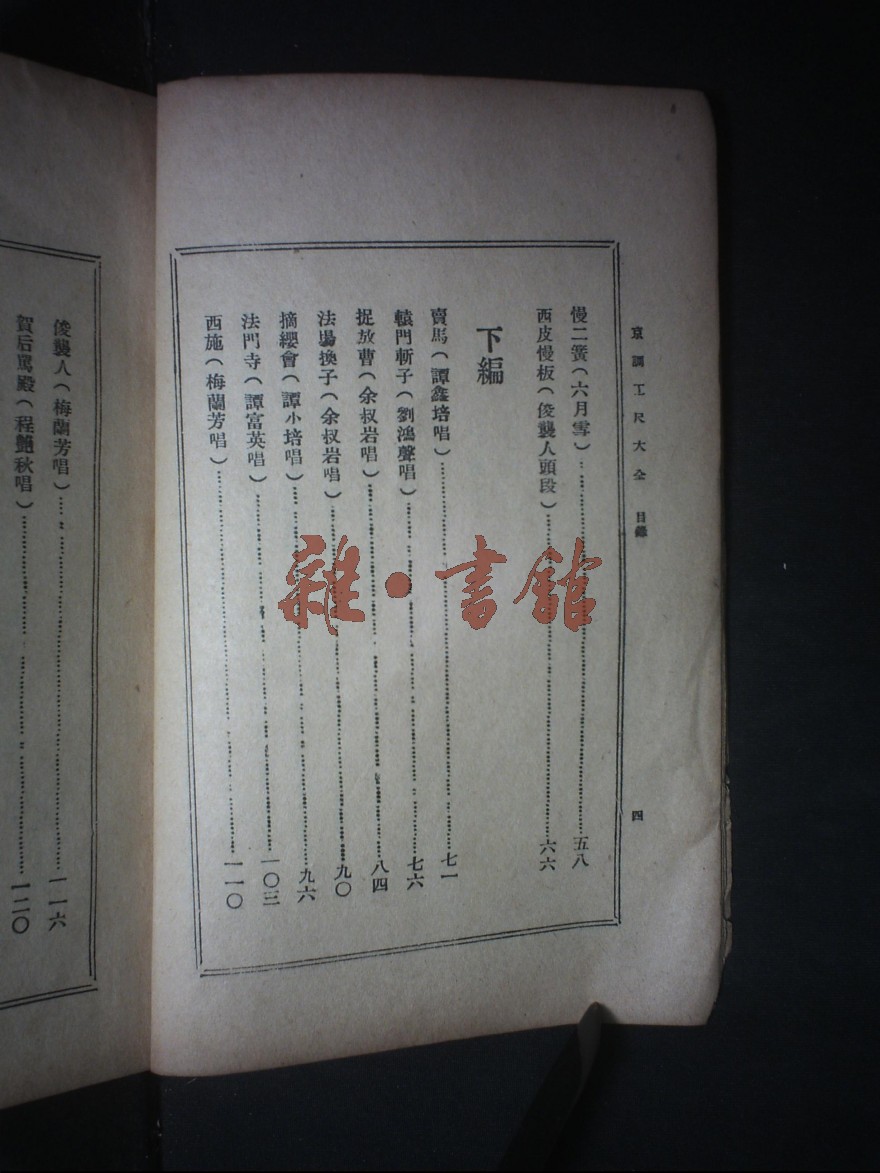 京調工尺大全 目錄 四
慢二簧(六月雪)五八
西皮慢板(俊襲人頭段)六六
下編
賣馬(譚鑫培唱)七一
轅門斬子(劉鴻聲唱)七六
捉放曹(余叔岩唱)八四
法場換子(余叔岩唱)九〇
摘纓會(譚小培唱)九六
法門寺(譚富英唱)一〇三
西施(梅蘭芳唱)一一〇
俊襲人(梅蘭芳唱)一一六
賀后罵殿(程艷秋唱)一二〇
雜·書館